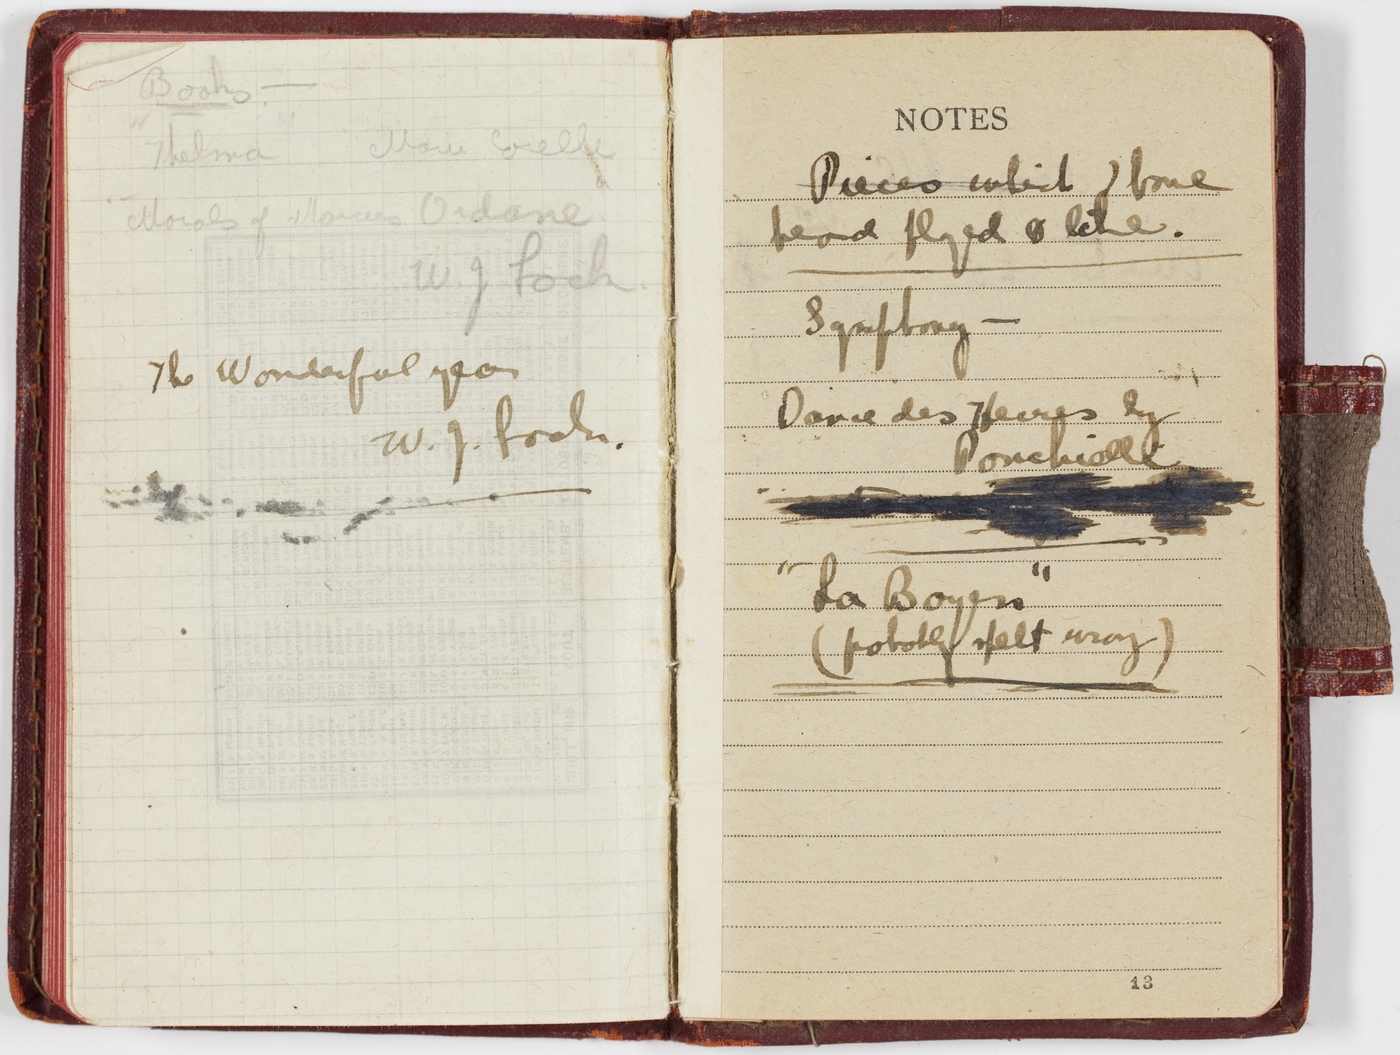 Books —
"Thelma Marie Corelli
"Morals of Marcus Ordane.
W. J Lock.
The Wonderful year
W. J. Lock.
NOTES
Pieces which I have
heard played & like.
Symphony —
Dance des Heures by
Ponchielli
"La Boyen"
(probably spelt wrong)
13